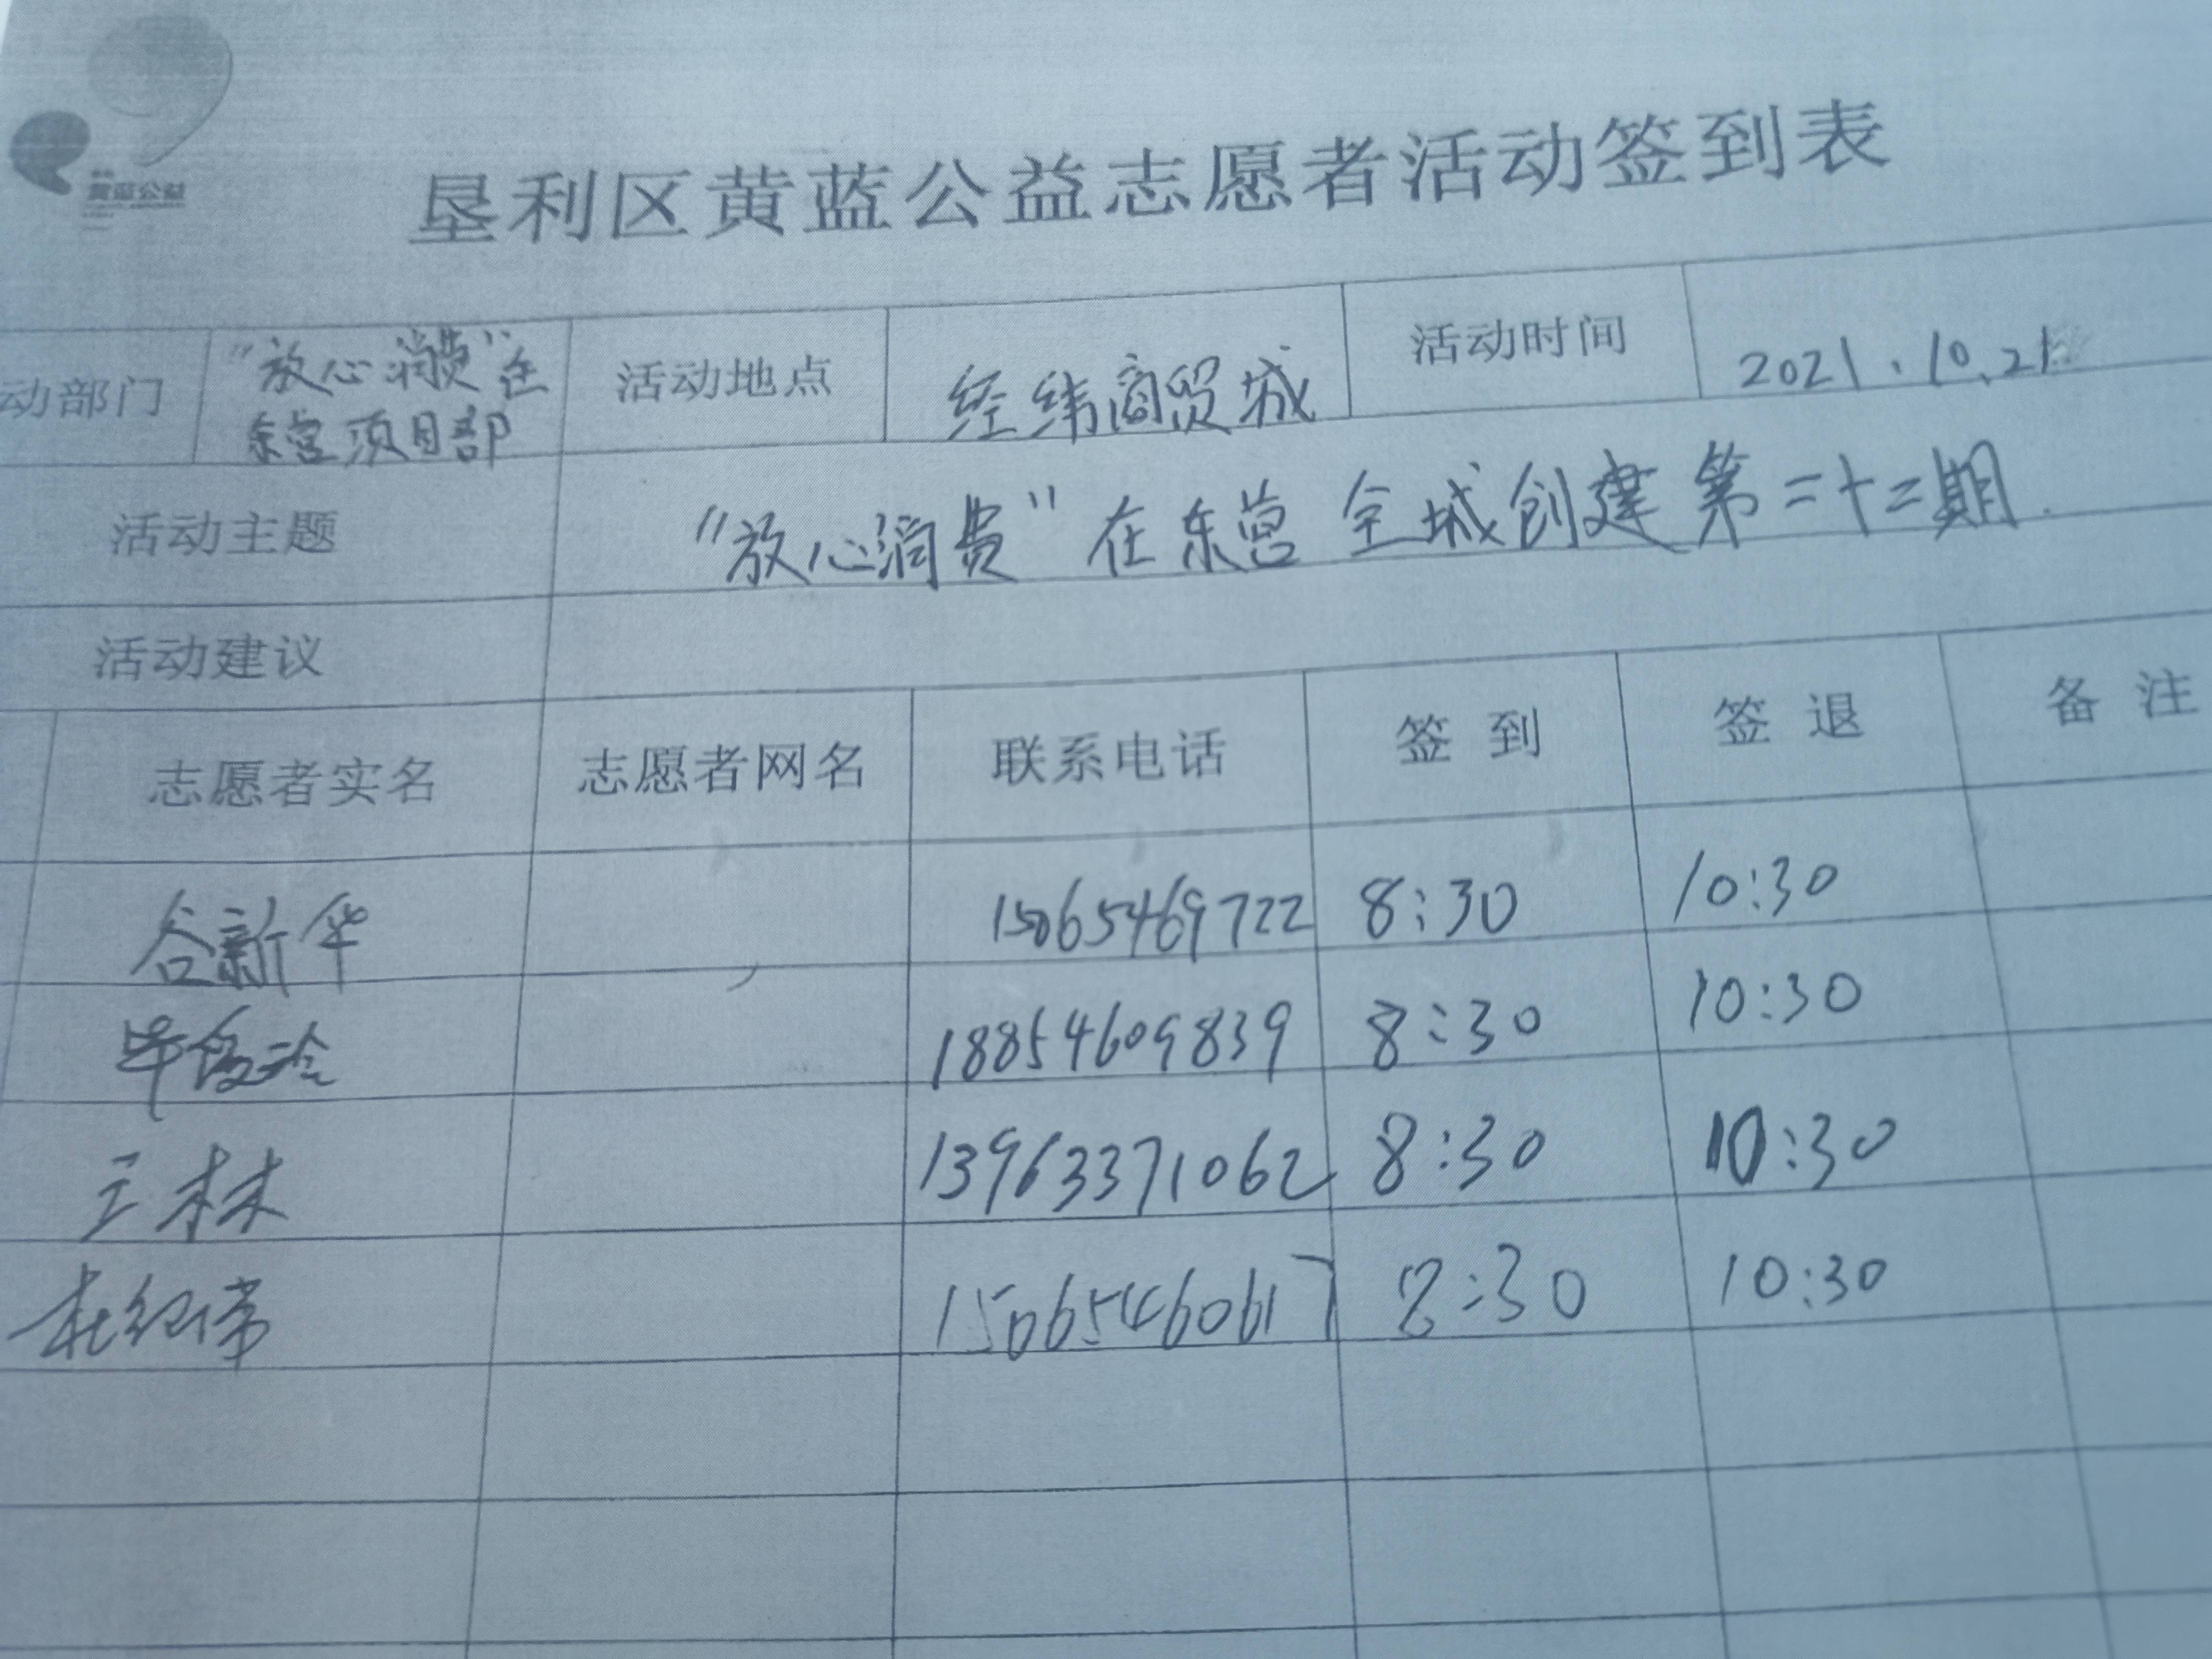 黄蓝公益
垦利区黄蓝公益志愿者活动签到表
动部门 “放心消费”在东营项目部 活动地点 经纬商贸城 活动时间 2021.10.21
活动主题 “放心消费”在东营 全城创建第二十二期
活动建议
志愿者实名 志愿者网名 联系电话 签到 签退 备注
谷新华 15065469722 8:30 10:30
18854609839 8:30 10:30
王林 13963371062 8:30 10:30
杜红伟 15065460617 8:30 10:30